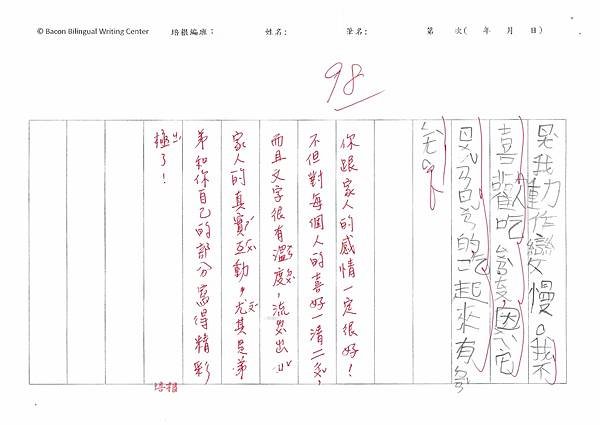 © Bacon Bilingual Writing Center 培根編班: 姓名: 筆名: 第 次( 年 月 日)
98
是我動作變慢。我不
喜歡吃
的吃起來有
你跟家人的感情一定很好!
不但對每個人的喜好一清二
而且文字很有溫度,流
出
家人的真實互動,尤其是弟
弟和你自己的部分寫得精彩
極了!
培根